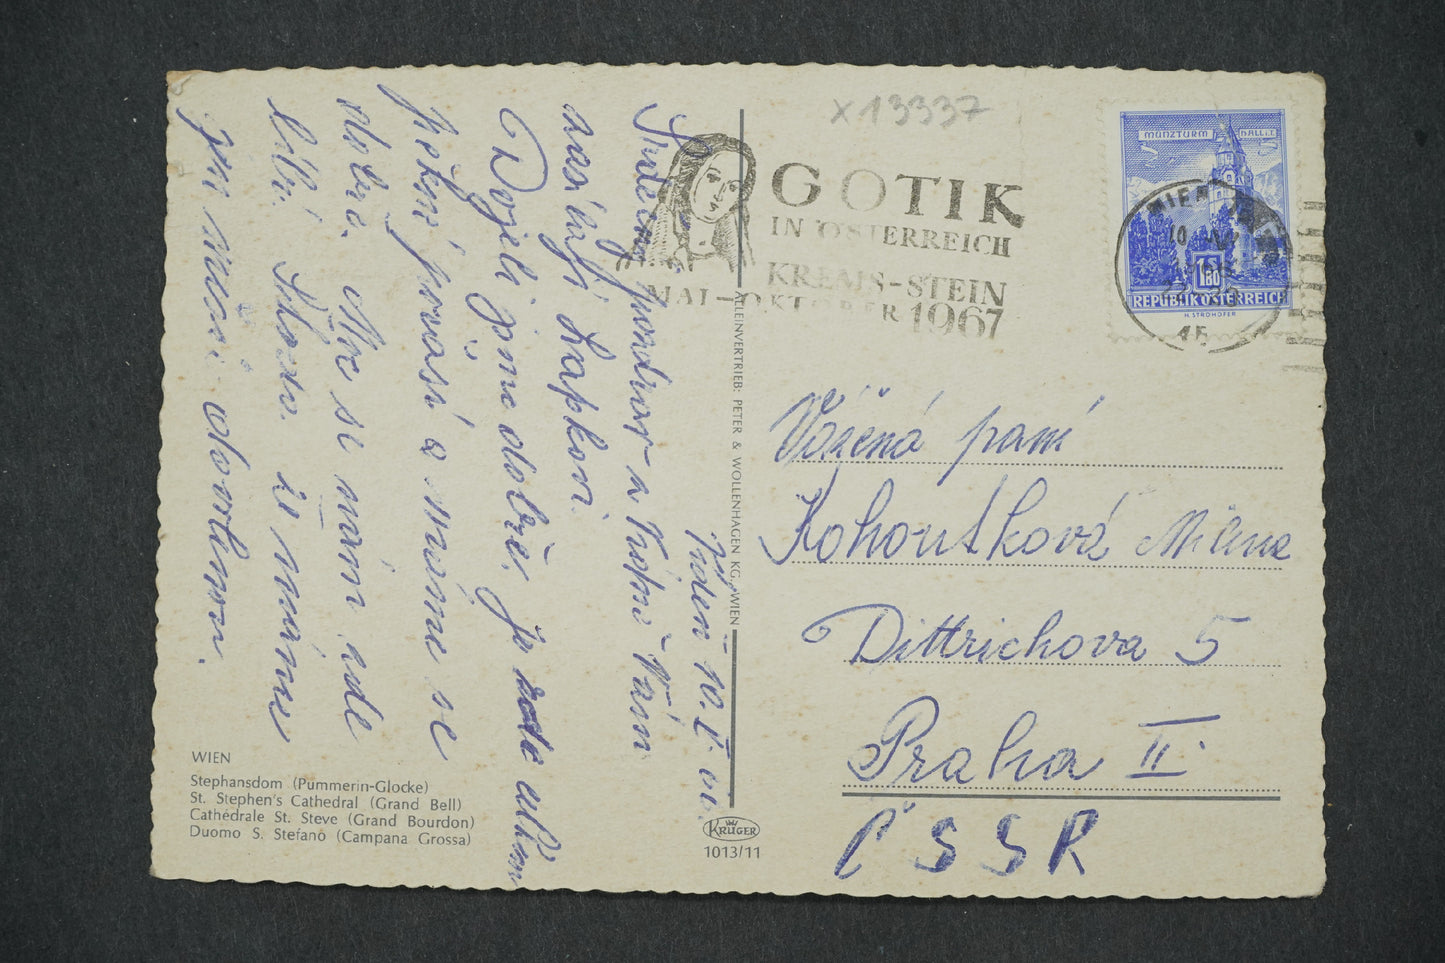 x 13337
GOTIK
IN ÖSTERREICH
KREMS-STEIN
MAI-OKTOBER 1967
MÜNZTURM HALL i.T.
1.80
S
REPUBLIK ÖSTERREICH
H. STROHOFER
WIEN
10
15
ALLEINVERTRIEB: PETER & WOLLENHAGEN KG, WIEN
Vídeň 10.
Srdečný pozdrav z Vídně Vám
zasílají Lapkovi.
Dojeli jsme dobře, je zde
pěkné počasí a máme se
dobře. Moc se nám zde
líbí.
Vážená paní
Kohoutková Milena
Dittrichova 5
Praha II.
ČSSR
WIEN
Stephansdom (Pummerin-Glocke)
St. Stephen's Cathedral (Grand Bell)
Cathédrale St. Steve (Grand Bourdon)
Duomo S. Stefano (Campana Grossa)
KRÜGER
1013/11